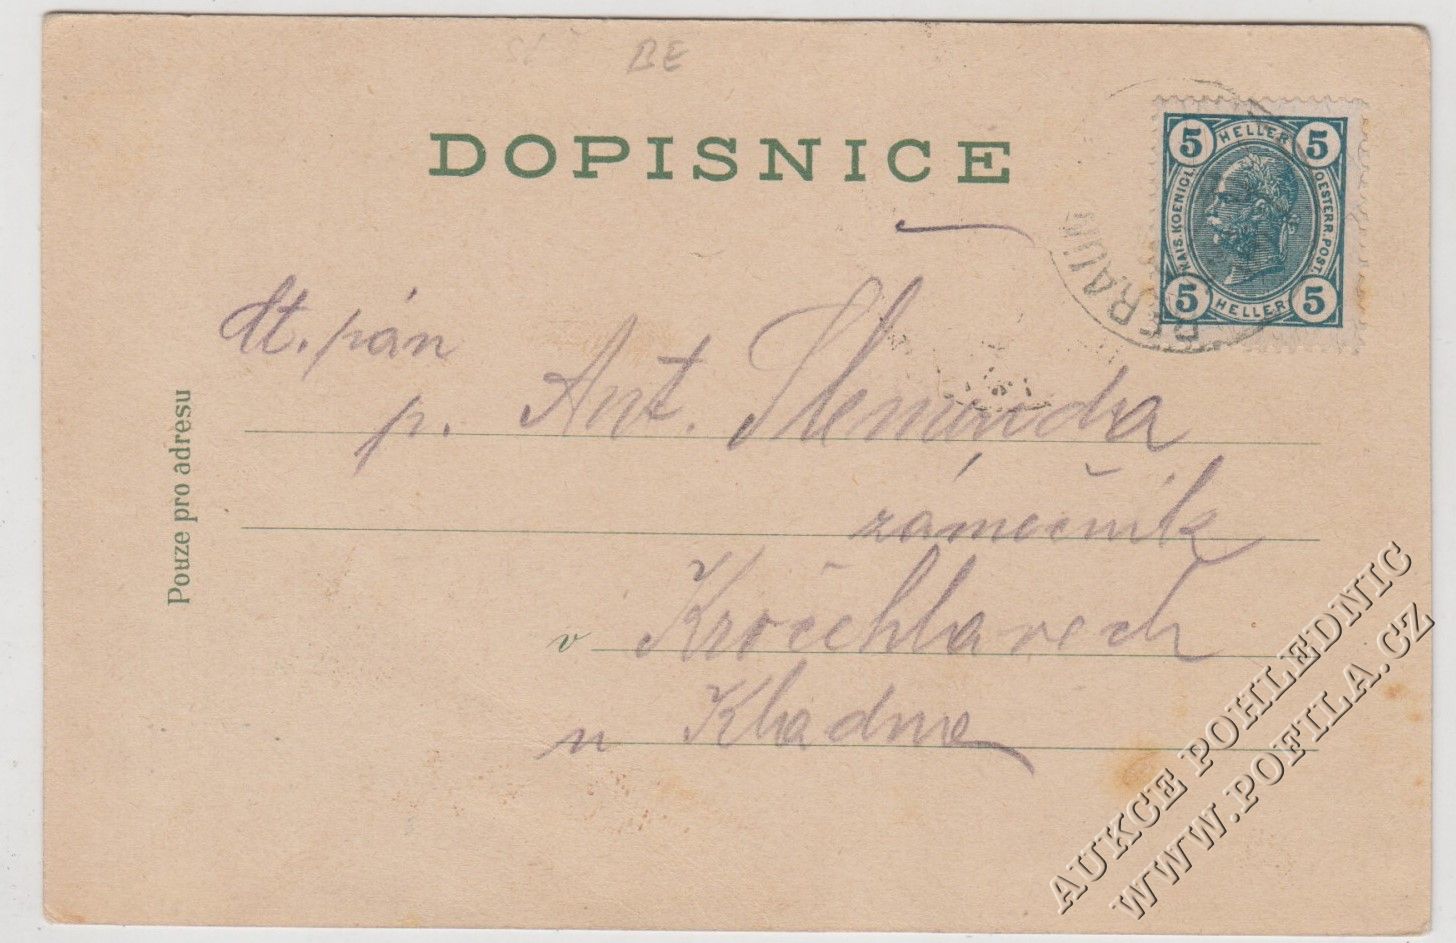 BE
DOPISNICE
5 HELLER 5
KAIS. KOENIGL.
OESTERR. POST.
5 HELLER 5
BERAUN
pán
p. Ant.
zámečník
v Kročehlavech
u Kladna
Pouze pro adresu
AUKCE POHLEDNIC
WWW.POFILA.CZ